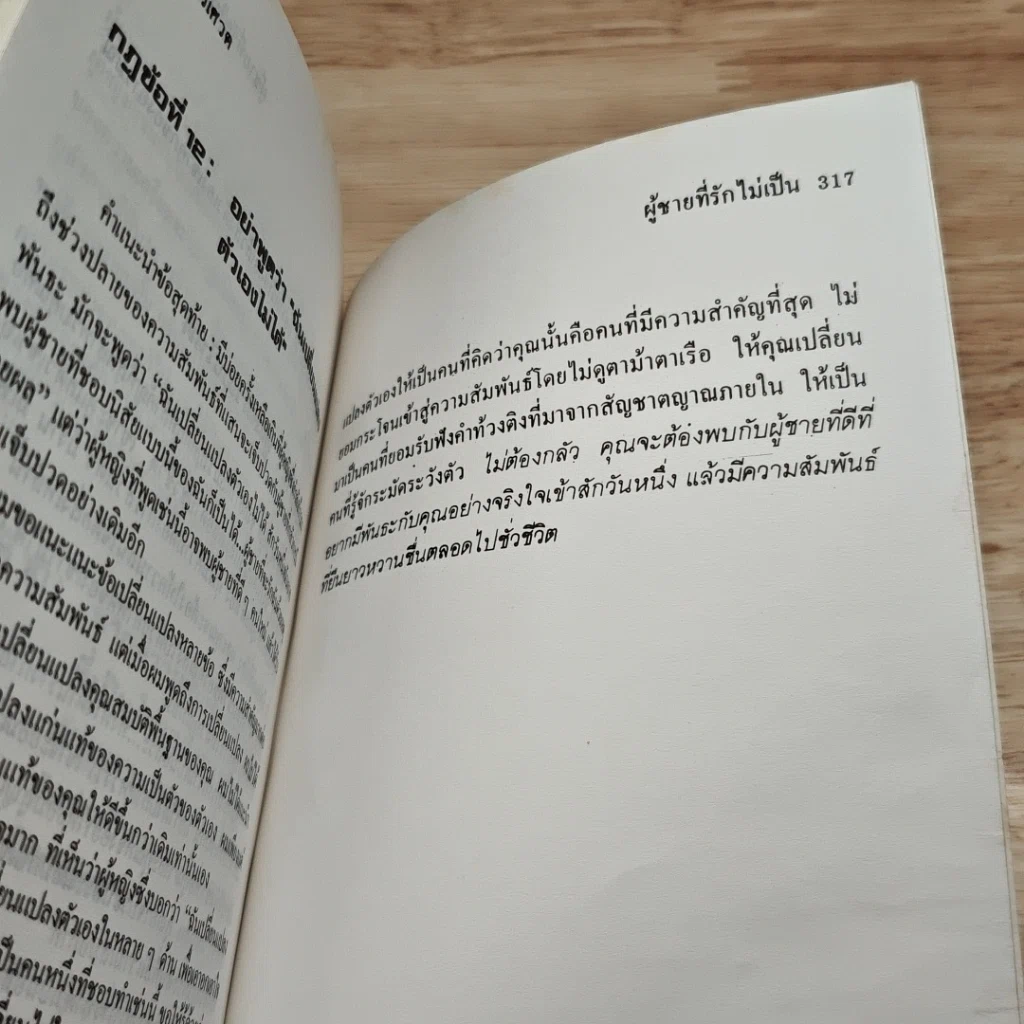 กฎข้อที่ 12 :
อย่าพูดว่า "ฉันเปลี่ยน
ตัวเองไม่ได้"
คำแนะนำข้อสุดท้าย : มีบ่อยครั้งเหลือเกินที่
ถึงช่วงปลายของความสัมพันธ์ที่แสนจะเจ็บปวด
พันธะ มักจะพูดว่า "ฉันเปลี่ยนแปลงตัวเองไม่ได้
พบผู้ชายที่ชอบนิสัยแบบนี้ของฉันก็เป็นได้...ผู้ชาย
ยผล" แต่ว่าผู้หญิงที่พูดเช่นนี้อาจพบผู้ชายที่ดี ๆ คนใหม่
เจ็บปวดอย่างเดิมอีก
มขอแนะแนะข้อเปลี่ยนแปลงหลายข้อ ซึ่งมีความสำคัญ
ความสัมพันธ์ แต่เมื่อผมพูดถึงการเปลี่ยนแปลง
ปลี่ยนแปลงคุณสมบัติพื้นฐานของคุณ ผมไม่ได้
ปลงแก่นแท้ของความเป็นตัวของตัวเอง
แท้ของคุณให้ดีขึ้นกว่าเดิมเท่านั้นเอง
จมาก ที่เห็นว่าผู้หญิงซึ่งบอกว่า "ฉันเปลี่ยนแปลง
ลี่ยนแปลงตัวเองในหลาย ๆ ด้าน เพื่อเอาอกเอาใจ
ป็นคนหนึ่งที่ชอบทำเช่นนี้ ขอให้
ผู้ชายที่รักไม่เป็น 317
แปลงตัวเองให้เป็นคนที่คิดว่าคุณนั้นคือคนที่มีความสำคัญที่สุด ไม่
ยอมกระโจนเข้าสู่ความสัมพันธ์โดยไม่ดูตาม้าตาเรือ ให้คุณเปลี่ยน
มาเป็นคนที่ยอมรับฟังคำท้วงติงที่มาจากสัญชาตญาณภายใน ให้เป็น
คนที่รู้จักระมัดระวังตัว ไม่ต้องกลัว คุณจะต้องพบกับผู้ชายที่ดีที่
อยากมีพันธะกับคุณอย่างจริงใจเข้าสักวันหนึ่ง แล้วมีความสัมพันธ์
ที่ยืนยาวหวานชื่นตลอดไปชั่วชีวิต